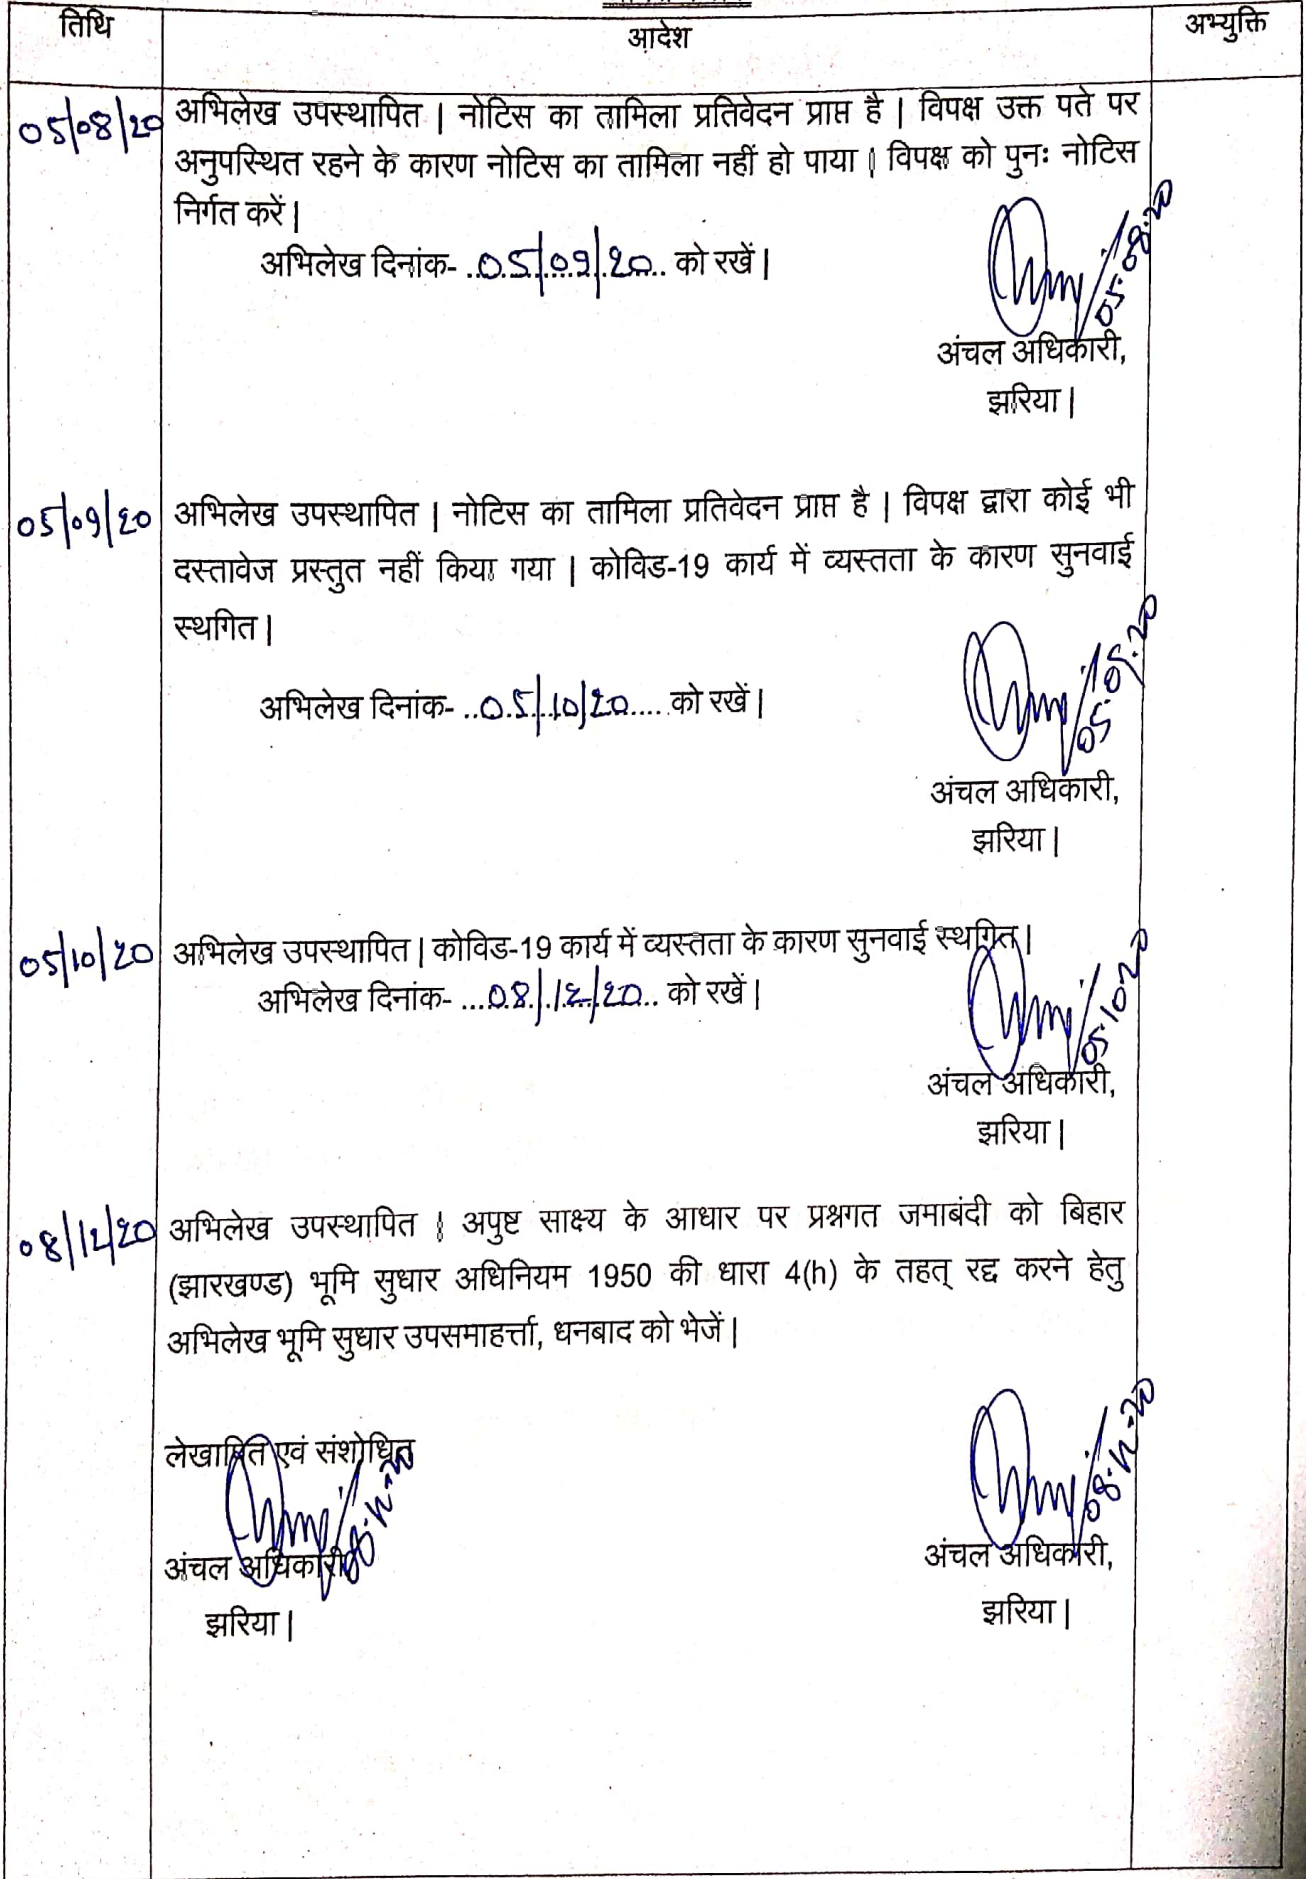 तिथि
आदेश
अभ्युक्ति
05/08/20
अभिलेख उपस्थापित | नोटिस का तामिला प्रतिवेदन प्राप्त है | विपक्ष उक्त पते पर
अनुपस्थित रहने के कारण नोटिस का तामिला नहीं हो पाया | विपक्ष को पुनः नोटिस
निर्गत करें |
अभिलेख दिनांक- ..05/09/20.. को रखें |
05.08.20
अंचल अधिकारी,
झरिया |
05/09/20
अभिलेख उपस्थापित | नोटिस का तामिला प्रतिवेदन प्राप्त है | विपक्ष द्वारा कोई भी
दस्तावेज प्रस्तुत नहीं किया गया | कोविड-19 कार्य में व्यस्तता के कारण सुनवाई
स्थगित |
अभिलेख दिनांक- ..05/10/20.... को रखें |
05.09.20
अंचल अधिकारी,
झरिया |
05/10/20
अभिलेख उपस्थापित | कोविड-19 कार्य में व्यस्तता के कारण सुनवाई स्थगित |
अभिलेख दिनांक- ...08/12/20.. को रखें |
05.10.20
अंचल अधिकारी,
झरिया |
08/12/20
अभिलेख उपस्थापित | अपुष्ट साक्ष्य के आधार पर प्रश्नगत जमाबंदी को बिहार
(झारखण्ड) भूमि सुधार अधिनियम 1950 की धारा 4(h) के तहत् रद्द करने हेतु
अभिलेख भूमि सुधार उपसमाहर्त्ता, धनबाद को भेजें |
लेखापित एवं संशोधित
08.12.20
अंचल अधिकारी
झरिया |
08.12.20
अंचल अधिकारी,
झरिया |